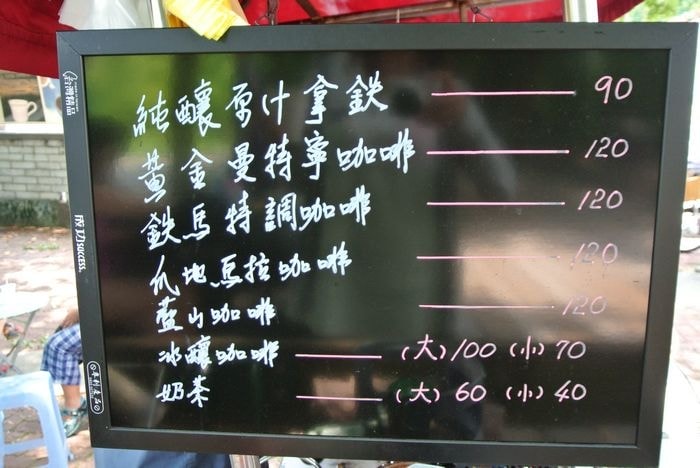 純釀原汁拿鉄 90
黃金曼特寧咖啡 120
鉄馬特調咖啡 120
爪地馬拉咖啡 120
藍山咖啡 120
冰釀咖啡 (大)100 (小)70
奶茶 (大)60 (小)40
成功SUCCESS.